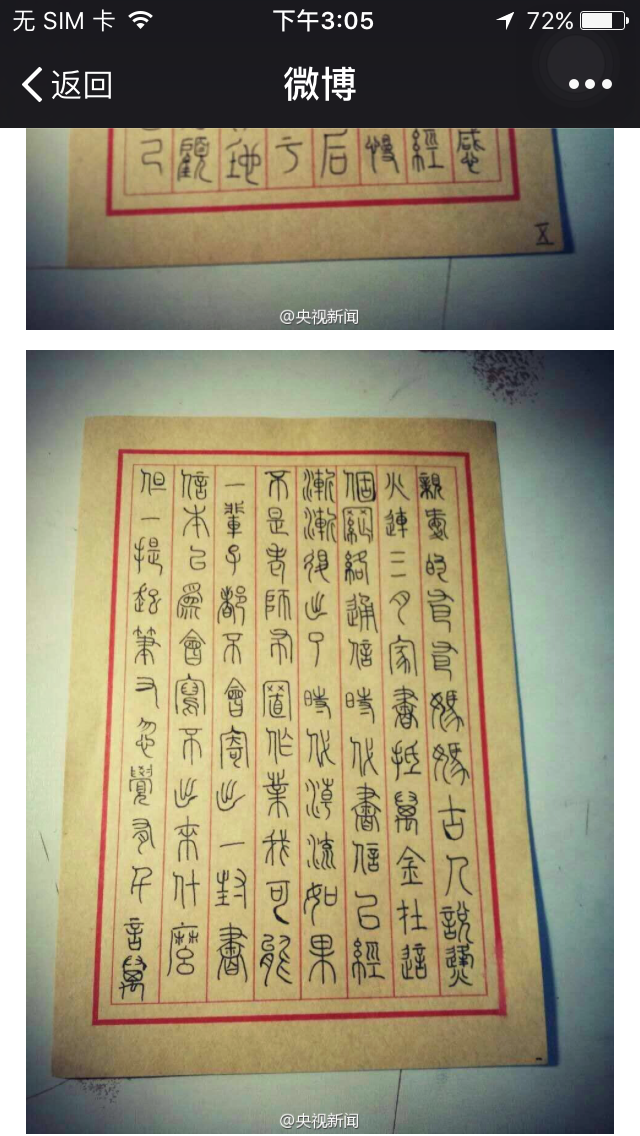 无 SIM 卡 下午3:05 72%
返回 微博
感
經
慢
后
地
顧
己
@央视新闻
親愛的爸爸媽媽古人說烽
火連三月家書抵萬金在這
個網絡通信時代書信已經
漸漸退出了時代潮流如果
不是老師布置作業我可能
一輩子都不會寄出一封書
信本以為會寫不出來什麼
但一提起筆又忽覺有千言萬
@央视新闻